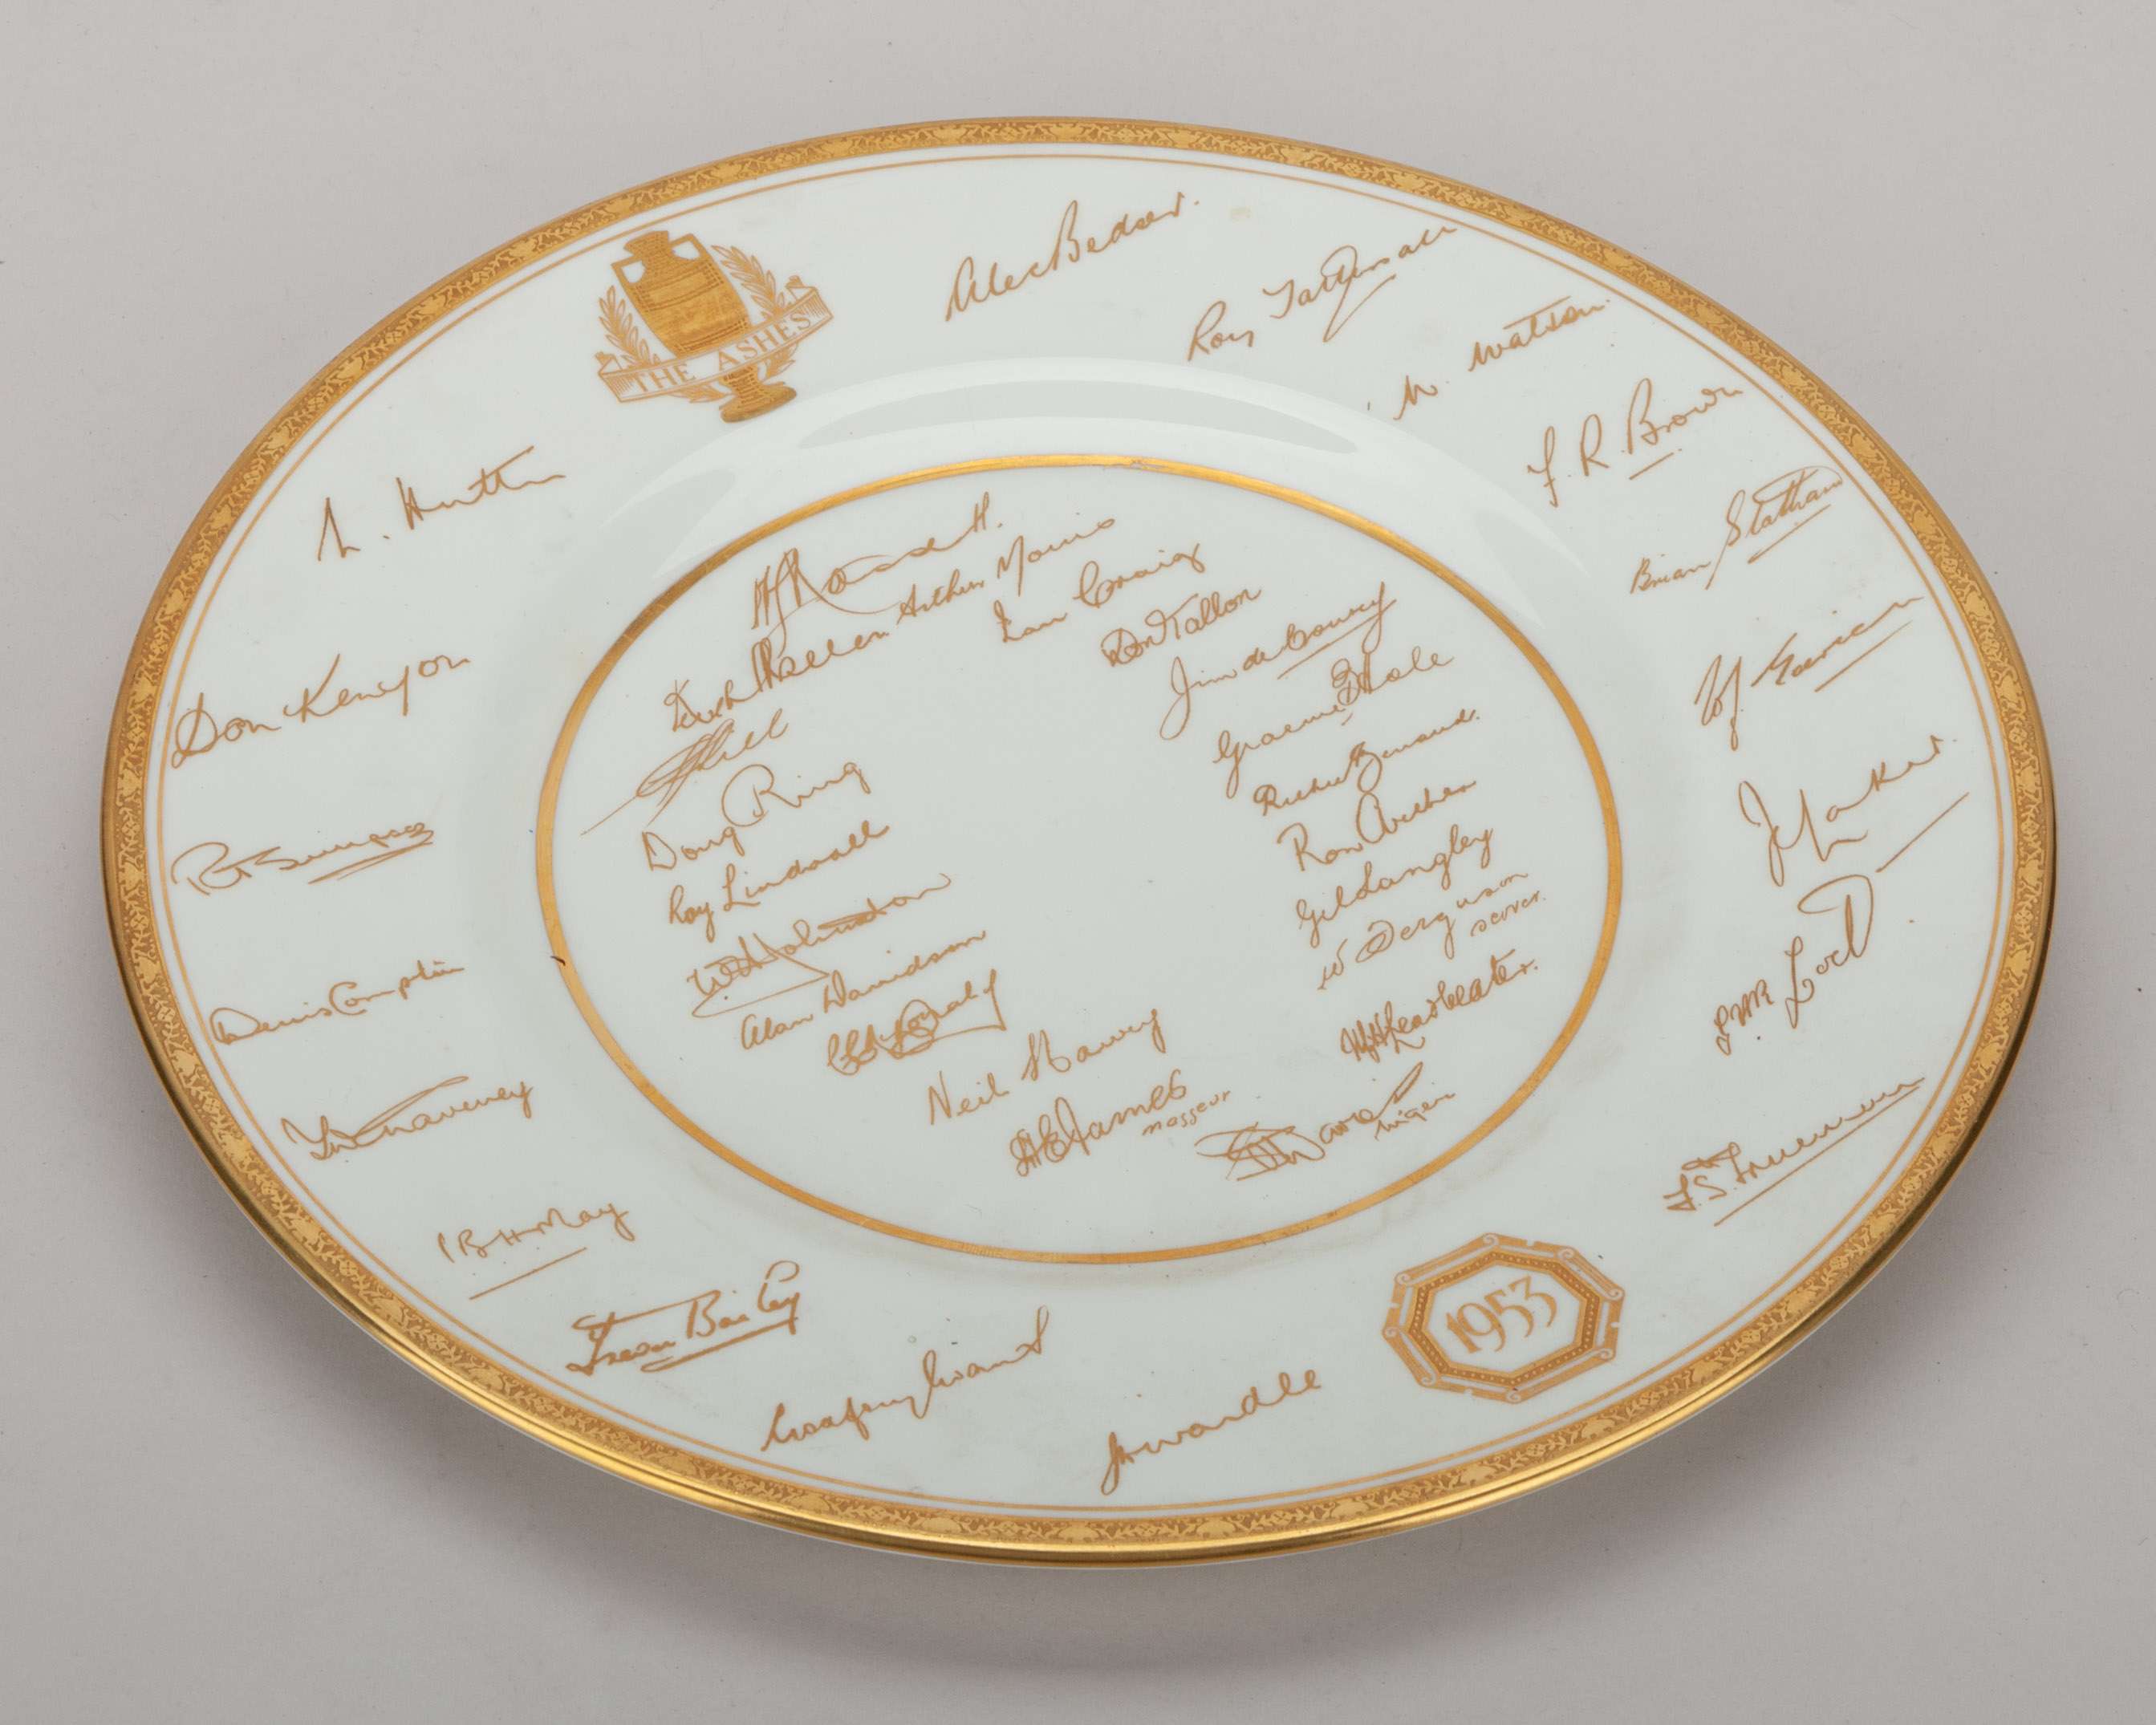 THE ASHES
Alec Bedser.
Roy Tattersall
W. Watson.
F. R. Brown
Brian Statham
L. Hutton
Don Kenyon
R T Simpson
Denis Compton
T W Graveney
P B H May
Trevor Bailey
Godfrey Evans
J H Wardle
1953
F. S. Trueman
G A R Lock
J C Laker.
A L Hassett.
Arthur Morris
Ian Craig
Don Tallon
Jim de Courcy
Graeme B Hole
Richie Benaud.
Ron Archer
Gil Langley
W Ferguson
scorer.
Keith Miller
J C Hill
Doug Ring
Ray Lindwall
W A Johnston
Alan Davidson
C C McDonald
Neil Harvey
A E James
masseur
G A Davies
Mger